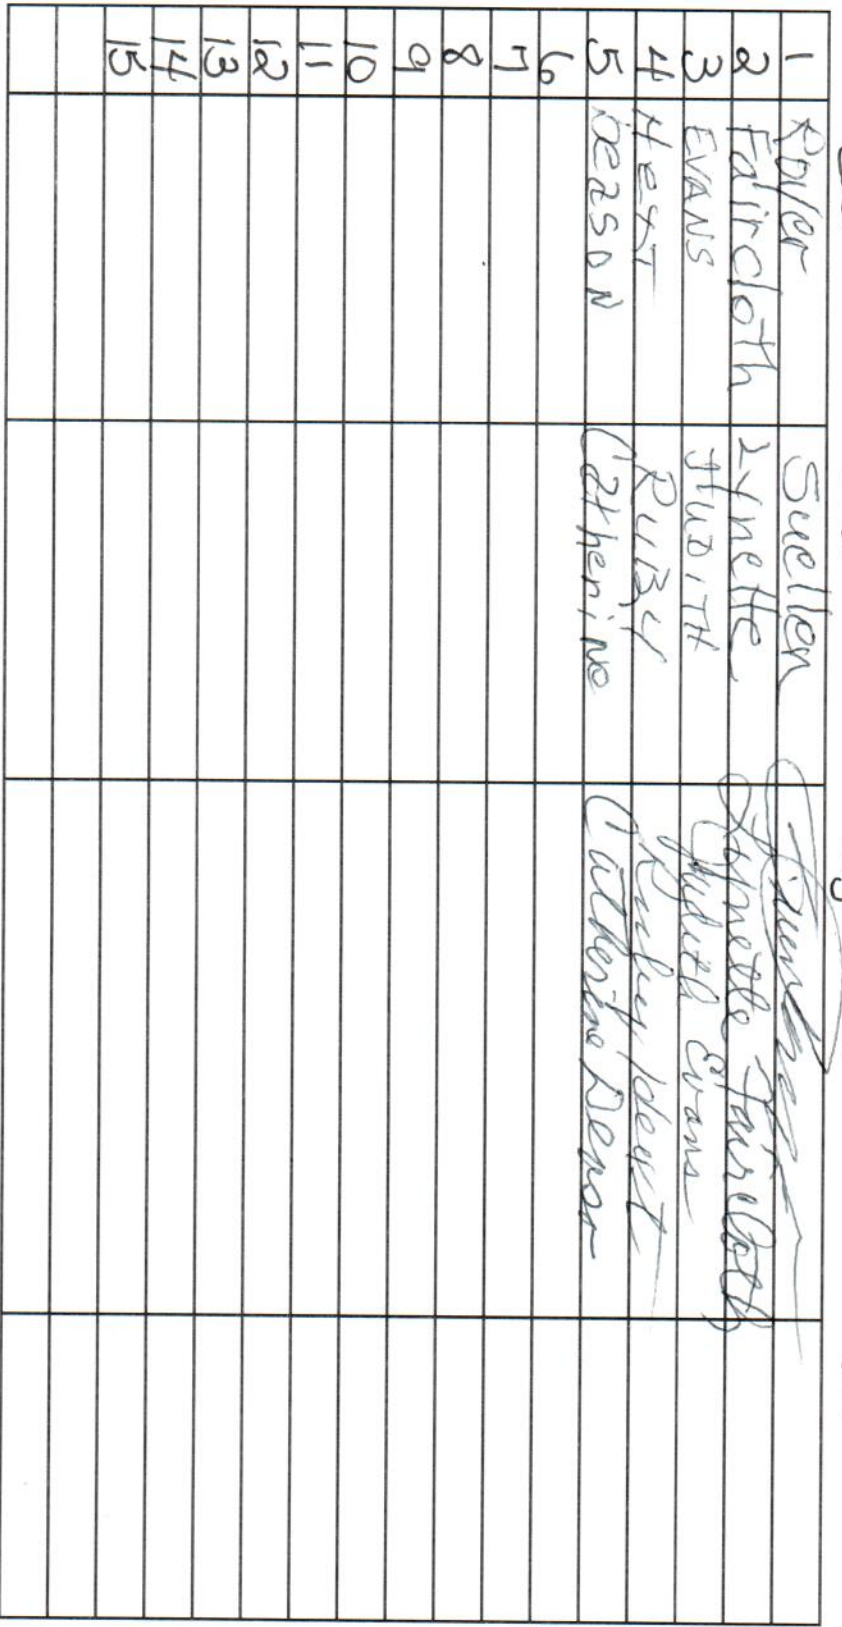 1 Rover Suellen
2 Faircloth Lynette Lynette Faircloth
3 EVANS JUDITH Judith Evans
4 HEXT RUBY Ruby Hext
5 Catherine Catherine
6
7
8
9
10
11
12
13
14
15